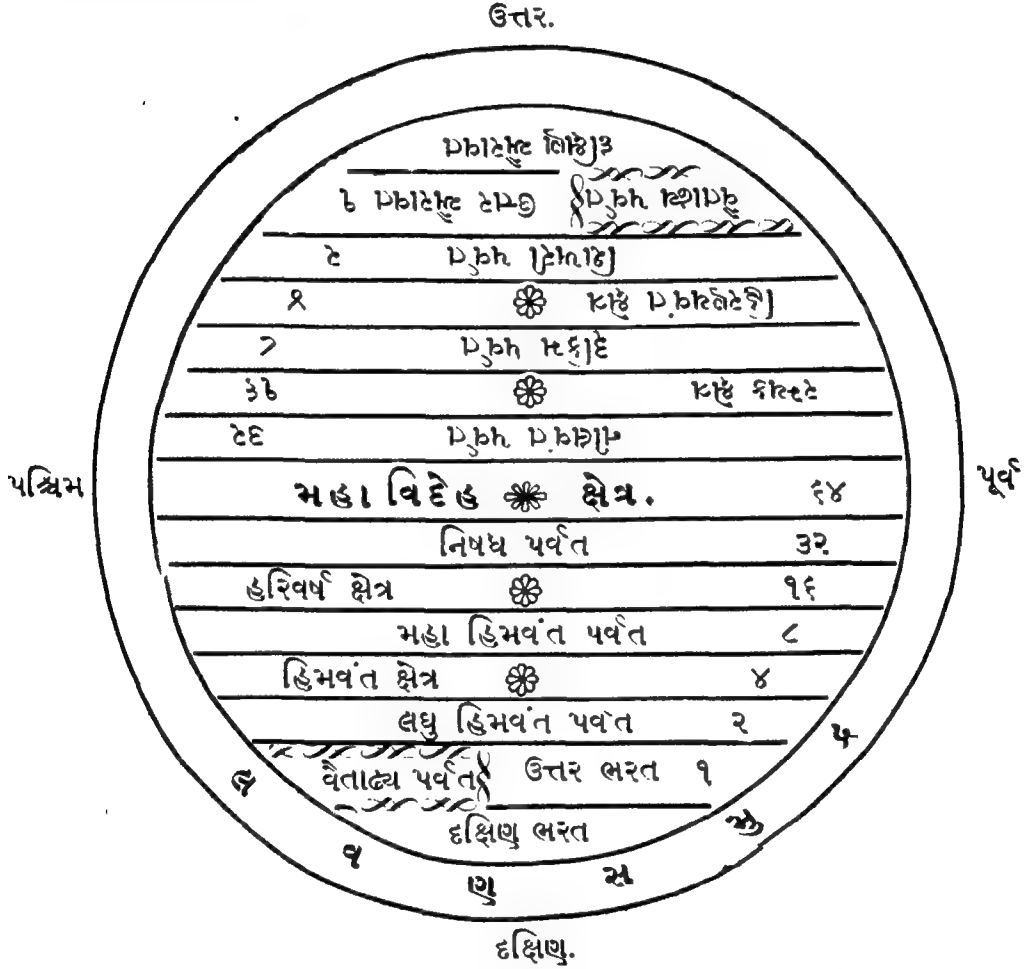 ઉત્તર.
દક્ષિણ ઐરાવત
વૈતાઢ્ય પર્વત ઉત્તર ઐરાવત ૧
શિખરી પર્વત ૨
હિરણ્યવંત ક્ષેત્ર ૪
પર્વત ૮
રમ્યક ક્ષેત્ર ૧૬
નીલવંત પર્વત ૩૨
પશ્ચિમ
મહા વિદેહ ક્ષેત્ર. ૬૪
પૂર્વ
નિષધ પર્વત ૩૨
હરિવર્ષ ક્ષેત્ર ૧૬
મહા હિમવંત પર્વત ૮
હિમવંત ક્ષેત્ર ૪
લઘુ હિમવંત પર્વત ૨
વૈતાઢ્ય પર્વત ઉત્તર ભરત ૧
દક્ષિણ ભરત
લ વ ણ સ મુ દ્ર
દક્ષિણ.